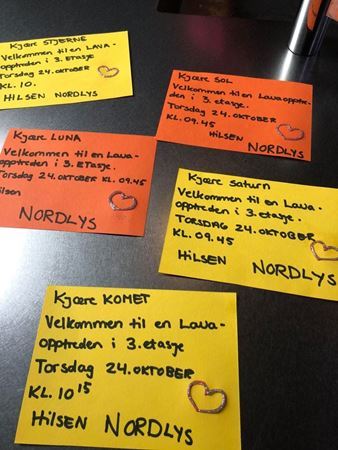 Kjære STJERNE
Velkommen til en LAVA-
opptreden i 3. etasje
Torsdag 24. OKTOBER
KL. 10.
HILSEN NORDLYS
Kjære SOL
Velkommen til en Lavaopptre-
den i 3. etasje.
Torsdag 24. OKTOBER
KL. 09.45
HILSEN
NORDLYS
Kjære LUNA
Velkommen til en Lava-
opptreden i 3. Etasje.
Torsdag 24. OKTOBER KL. 09.45
Hilsen
NORDLYS
Kjære Saturn
Velkommen til en Lava-
opptreden i 3. etasje.
TORSDAG 24. OKTOBER
KL. 09.45
HILSEN NORDLYS
Kjære KOMET
Velkommen til en Lava-
opptreden i 3. etasje
Torsdag 24. OKTOBER
KL. 10 15
HILSEN NORDLYS